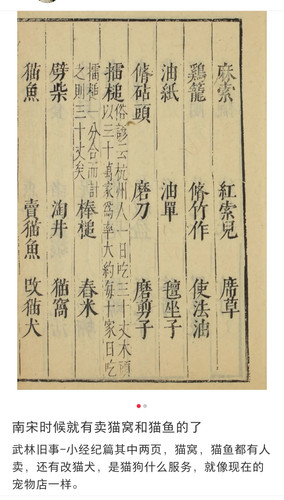 麻索 紅索兒 席草
鷄籠 脩竹作 使法油
油紙 油單 氊坐子
脩砧頭 磨刀 磨剪子
擂槌 俗諺云杭州人一日吃三十丈木頭
以三十萬家爲率大約每十家日吃
擂槌一分合而計
之則三十丈矣 棒槌 舂米
劈柴 淘井 猫窩
猫魚 賣猫魚 改猫犬
南宋时候就有卖猫窝和猫鱼的了
武林旧事-小经纪篇其中两页，猫窝，猫鱼都有人
卖，还有改猫犬，是猫狗什么服务，就像现在的
宠物店一样。